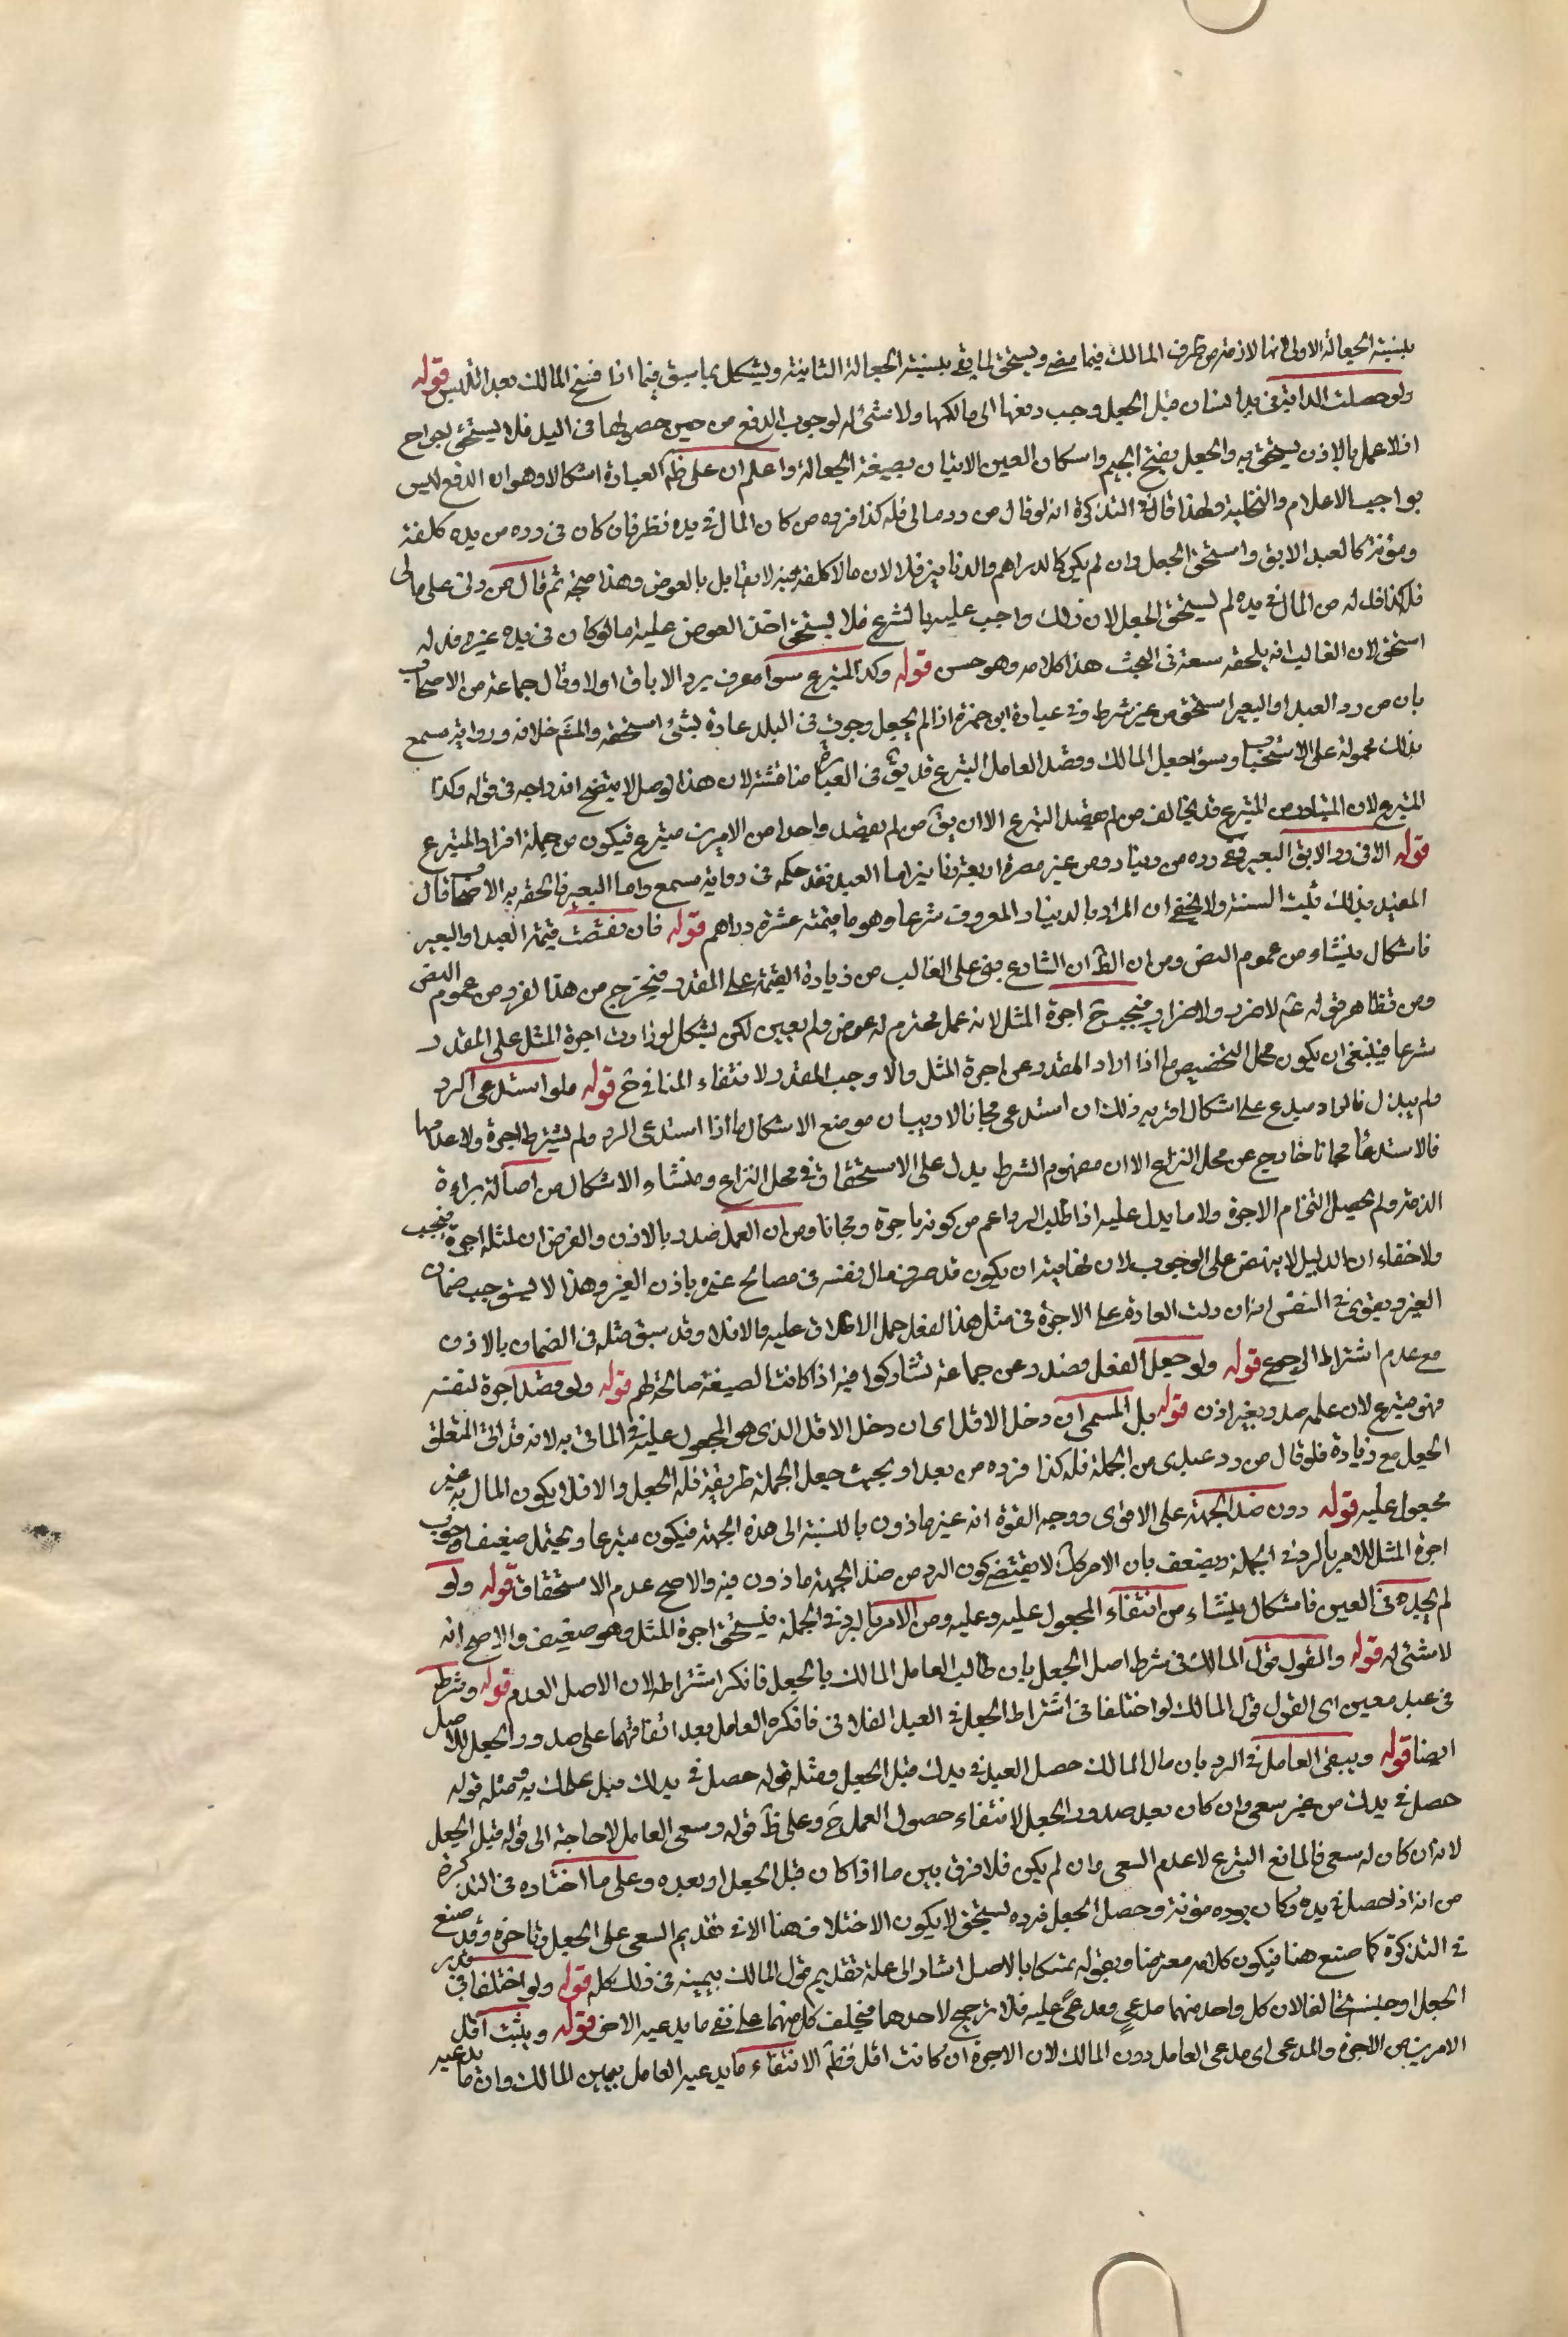 بنسبة الجعالة الاولى لانها لازمة من طرف المالك فيما مضى ويستحق لما بقى بنسبة الجعالة الثانية ويشكل بما سبق فيما اذا فسخ المالك بعد التلبس قوله
ولو حصلت الدابة فى يد انسان قبل الجعل وجب دفعها الى مالكها ولا شئ له لوجوب الدفع من حين حصولها فى اليد فلا يستحق لجواح
اذ لا عمل بالاذن يستحق به والجعل بفتح الجيم واسكان العين الاتيان بصيغة الجعالة واعلم ان على ظ العبارة اشكالا وهو ان الدفع ليس
بواجب بل الاعلام والتخلية ولهذا قال فى التذكرة انه لو قال من رد مالى فله كذا فرده من كان المال فى يده نظر فان كان فى رده من يده كلفة
ومؤنة كالعبد الابق واستحق الجعل وان لم يكن كالدراهم والدنانير فلا لان ما لا كلفة فيه لا يقابل بالعوض وهذا متجه ثم قال من دلنى على مالى
فله كذا فدله من المال فى يده لم يستحق الجعل لان ذلك واجب عليه بالشرع فلا يستحق اخذ العوض عليه اما لو كان فى يد غيره فدله
استحق لان الغالب انه يلحقه سعة فى البحث هذا كلامه وهو حسن قوله وكذا المتبرع سواء عرف برد الاباق اولا وقال جماعة من الاصحاب
بان من رد العبد او البعير استحق من غير شرط وفى عبارة ابن حمزة اذا لم يجعل وجرت فى البلد عادة بشئ استحقه والمتم خلافه ورواية مسمع
بذلك محمولة على الاستحباب وسواء جعل المالك وقصد العامل التبرع قد يق فى العبارة مناقشة لان هذا الوصل لا يتضح اندراجه فى قوله وكذا
المتبرع لان المتبادر من المتبرع قد يخالف من لم يقصد التبرع الا ان يق من لم يقصد واحدا من الامرين متبرع فيكون من جملة افراد المتبرع
قوله الا فى رد الابق البعير فع رده من دينار ومن غير مصره اربعة دنانير اما العبد فقد حكم فى رواية مسمع واما البعير فالحقه به الاصحاب قال
المفيد بذلك ثبت السنة ولا يخفى ان المراد بالدينار المعروف شرعا وهو ما قيمته عشرة دراهم قوله فان نقصت قيمة العبد او البعير
فاشكال ينشاء من عموم النص ومن ان الظ ان الشارع بنى على الغالب من زيادة القيمة على المقدر فيخرج من هذا الفرد من عموم النص
ومن تظاهر قوله ع لا ضرر ولا ضرار فيجب ح اجرة المثل لانه عمل محترم له عوض ولم يعين لكن يشكل لو زادت اجرة المثل على المقدر
شرعا فينبغى ان يكون محل التخصيص ما اذا زاد المقدر عن اجرة المثل والا وجب المقدر لانتفاء المنافى ح قوله فلو استدعى الرد
ولم يبذل فالراد متبرع على اشكال اقربه ذلك ان استدعى مجانا لا وبيان موضع الاشكال ما اذا استدعى الرد ولم يشترط اجرة ولا عدمها
فالاستدعاء مجانا خارج عن محل النزاع الا ان مفهوم الشرط يدل على الاستحقاق فى محل النزاع ومنشاء الاشكال من اصالة براءة
الذمة ولم يحصل التزام الاجرة ولا ما يدل عليه اذ اطلب الرد اعم من كونه باجرة ومجانا ومن ان العمل صدر بالاذن والفرض ان لمثله اجرة فيجب
ولا خفاء ان الدليل لا ينهض على الوجوب لان نهايته ان يكون قد صرف مال نفسه فى مصالح غيره باذن الغير وهذا لا يستوجب ضمان
الغير ويقوى فى النفس انه ان دلت العادة على الاجرة فى مثل هذا الفعل حمل الاطلاق عليه والا فلا وقد سبق مثله فى الضمان بالاذن
مع عدم اشتراط الرجوع قوله ولو جعل الفعل فصدر عن جماعة تشاركوا فيه اذا كانت الصيغة صالحة لهم قوله ولو قصد اجرة لنفسه
فهو متبرع لان عمله صدر بغير اذن قوله بل المسمى ان دخل الاقل اى ان دخل الاقل الذى هو المجعول عليه فى الماتى به لانه قد اتى المتعلق
الجعل مع زيادة فلو قال من رد عبدى من الحملة فله كذا فرده من بعد او بحيث جعل الجملة طريقية فله الجعل والا فلا يكون المال به غير
مجعول عليه قوله دون ضد الجهة على الاقوى ووجه القوة انه غير ماذون بالنسبة الى هذه الجهة فيكون متبرعا ويحتمل ضعيفا وجوب
اجرة المثل للامر بالرد فى الجملة ويضعف بان الامر كك لا يقتضى كون الرد من ضد الجهة ماذون فيه والاصح عدم الاستحقاق قوله ولو
لم يجده فى العين فاشكال ينشاء من انتفاء المجعول عليه وعليه ومن الامر بالرد فى الجملة فيستحق اجرة المثل وهو ضعيف والاصح انه
لا شئ له قوله والقول قول المالك فى شرط اصل الجعل بان طالب العامل المالك بالجعل فانكر اشتراطه لان الاصل العدم قوله وشرطه
فى عبد معين اى القول قول المالك لو اختلفا فى اشتراط الجعل فى العبد الفلانى فانكره العامل بعد اتفاقهما على صدور الجعل للاصل
ايضا قوله وسعى العامل فى الرد بان مال المالك حصل العبد فى يدك قبل الجعل ومثله قوله حصل فى يدك قبل علمك به ومثله قوله
حصل فى يدك من غير سعى وان كان بعد صدور الجعل لانتفاء حصول العمل ح وعلى ظ قوله وسعى العامل لا حاجة الى قوله قبل الجعل
لانه ان كان له سعى فالمانع التبرع لا عدم السعى وان لم يكن فلا فرق بين ما اذا كان قبل الجعل او بعده وعلى ما اختاره فى التذكرة
من انه اذا حصل فى يده وكان برده مؤنة وحصل الجعل فرده يستحق لا يكون الاختلاف هنا الا فى تقديم السعى على الجعل وتاخره وقد صنع
فى التذكرة كما صنع هنا فيكون كلامه معترضا وبقوله تمسكا بالاصل اشار الى علة تقديم قول المالك بيمينه فى ذلك كله قوله ولو اختلفا فى قدر
الجعل او جنسه تحالفا لان كل واحد منهما مدعى ومدعى عليه فلا ترجيح لاحدهما فيحلف كل منهما على نفى ما يدعيه الاخر قوله ويثبت اقل
الامرين من الاجرة والمدعى اى مدعى العامل دون المالك لان الاجرة ان كانت اقل فظ الانتفاء ما يدعيه العامل بيمين المالك وان ما يدعيه